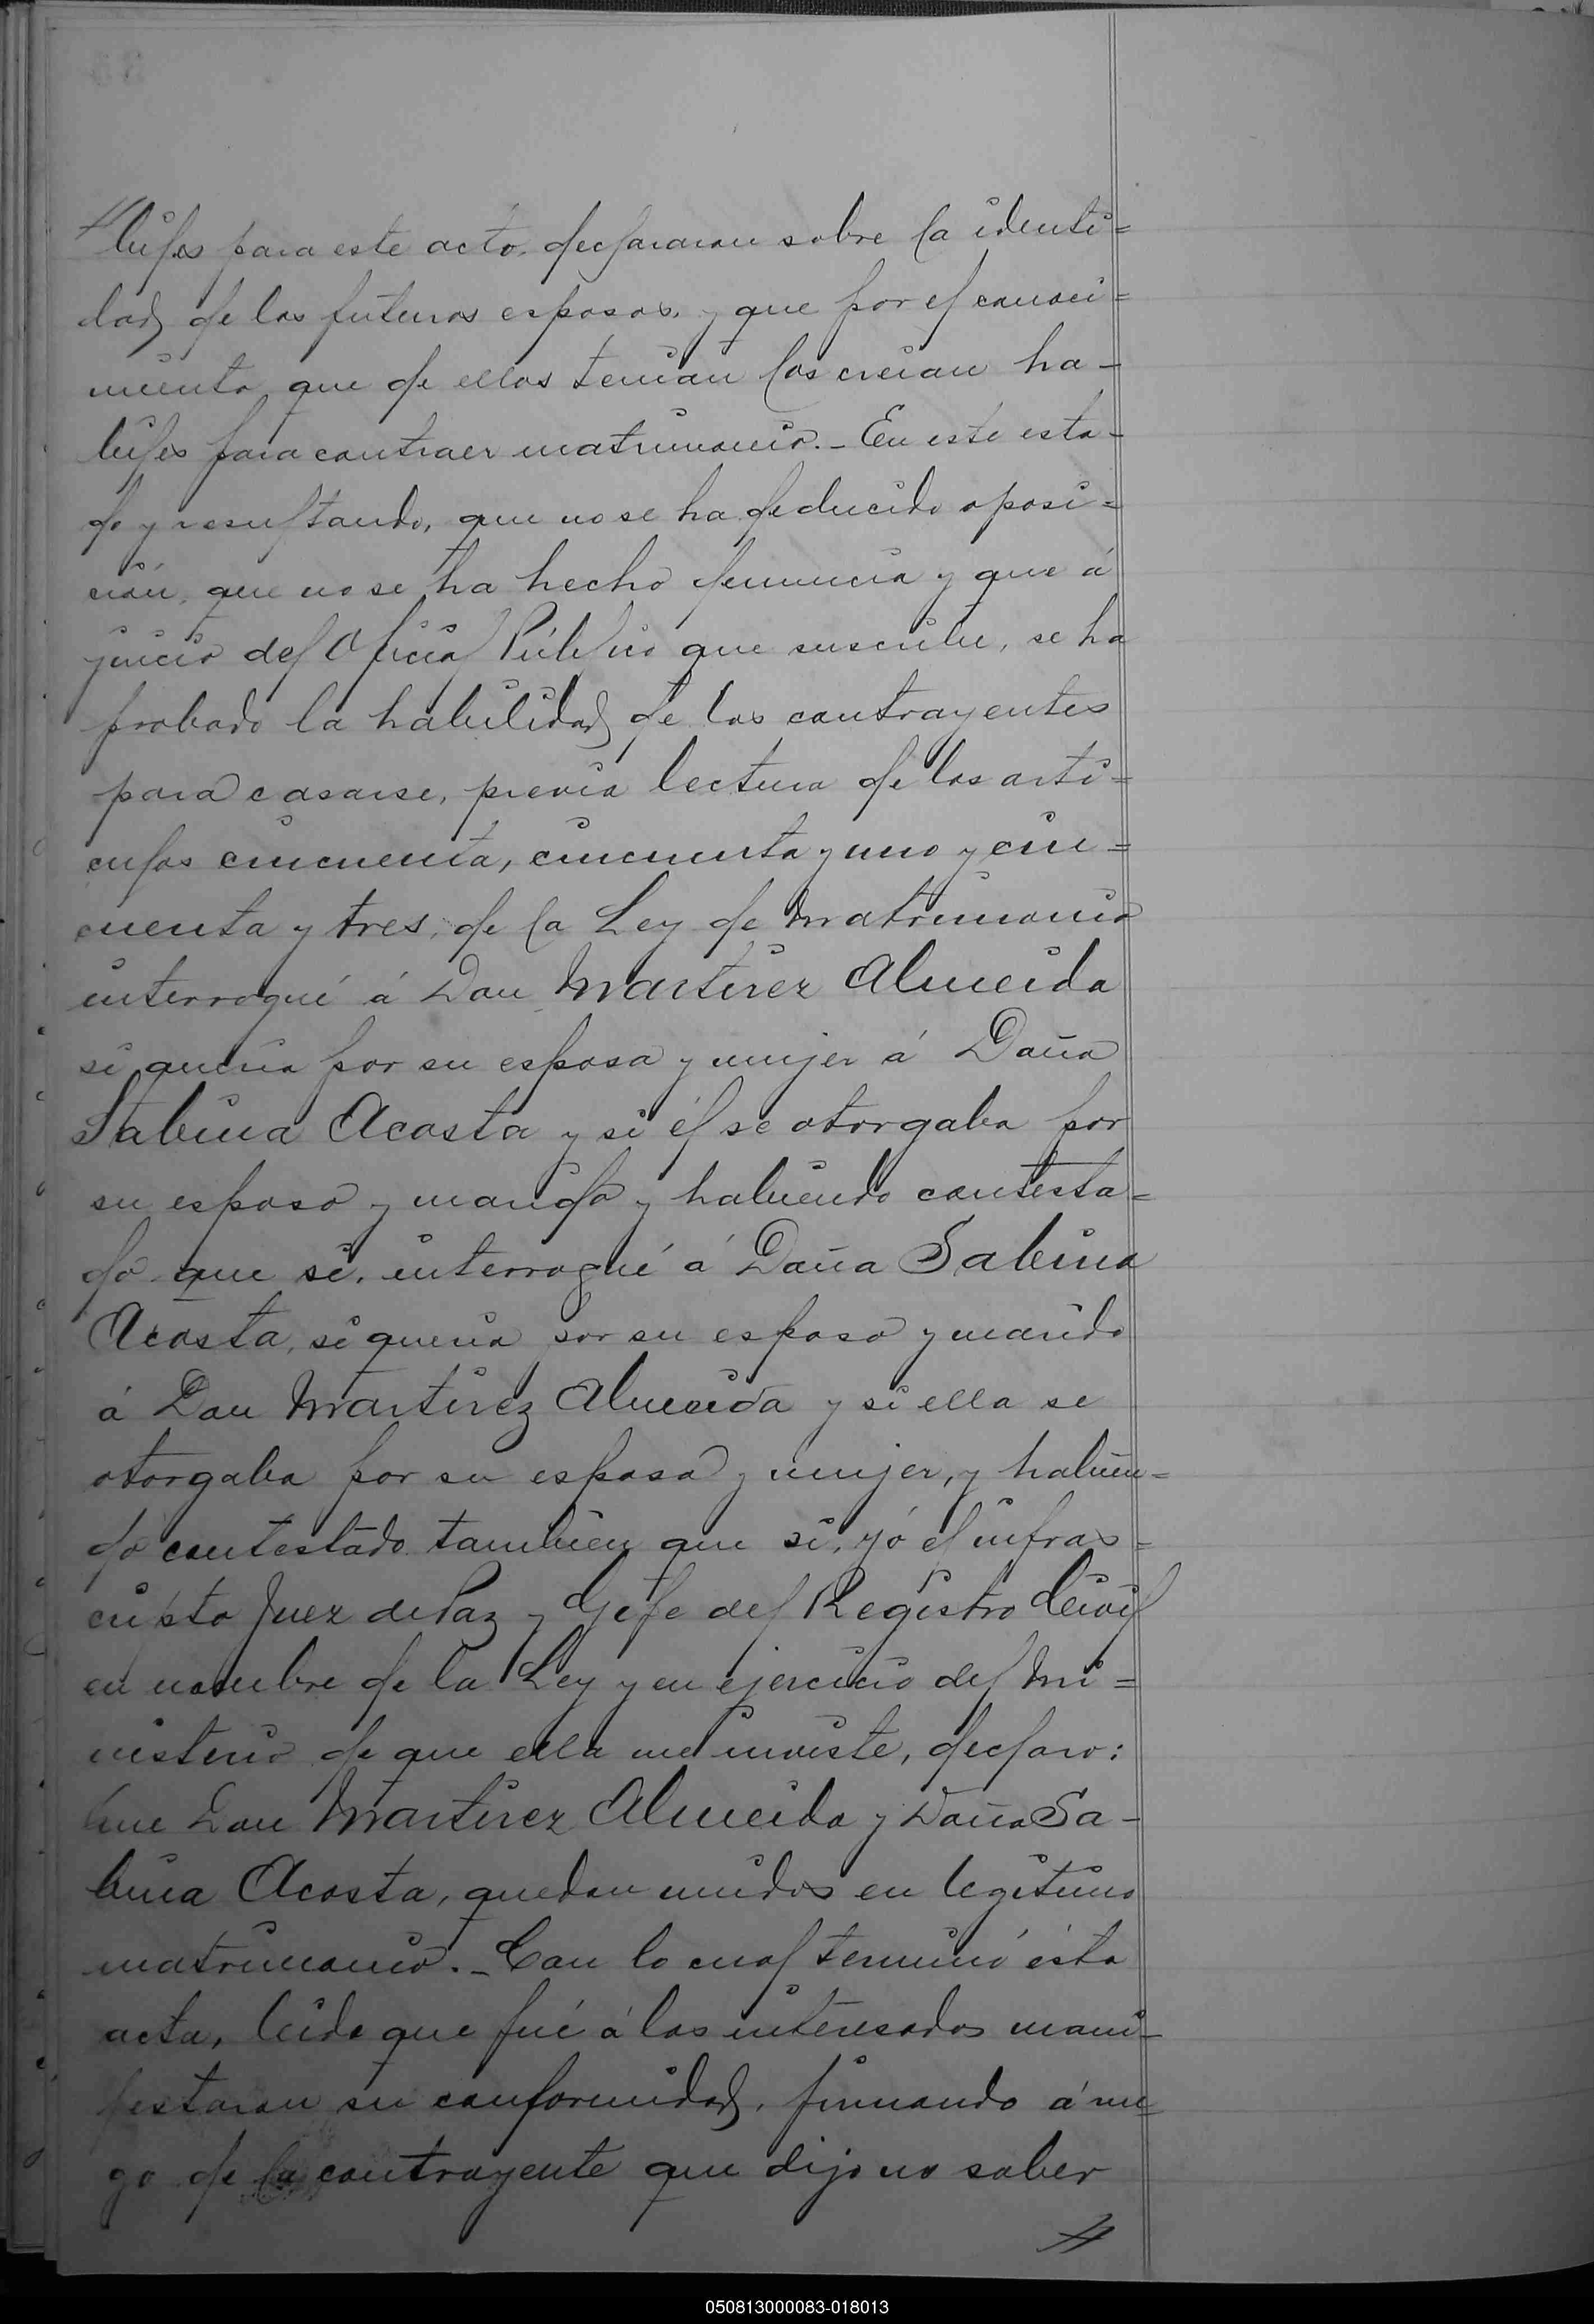 // biles para este acto, declararon sobre la identi=
dad de los futuros esposos, y que por el conoci=
miento que de ellos tenian los creian ha-
biles para contraer matrimonio.- En este esta-
do y resultando, que no se ha deducido oposi=
cion, que no se ha hecho denuncia y que á
juicio del Oficial Público que suscribe, se ha
probado la habilidad de los contrayentes
para casarse, previa lectura de los arti=
culos cincuenta, cincuenta y uno y cin=
cuenta y tres, de la Ley de Matrimonio
interrogué á Don Martirez Almeida
si queria por su esposa y mujer á Doña
Sabina Acosta y si él se otorgaba por
su esposo y marido y habiendo contesta=
do que si, interrogué á Doña Sabina
Acosta, si queria por su esposo y marido
á Don Martirez Almeida y si ella se
otorgaba por su esposa y mujer, y habien=
do contestado tambien que si, yó el infras=
cristo Juez de Paz y Gefe del Registro Civil
en nombre de la Ley y en ejercicio del Mi=
nisterio de que ella me inviste, declaro:
Que Don Martirez Almeida y Doña Sa-
bina Acosta, quedan unidos en legitimo
matrimonio.- Con lo cual terminó ésta
acta, leida que fué á los interesados mani-
festaron su conformidad, firmando á rue=
go de la contrayente que dijo no saber
//
050813000083-018013